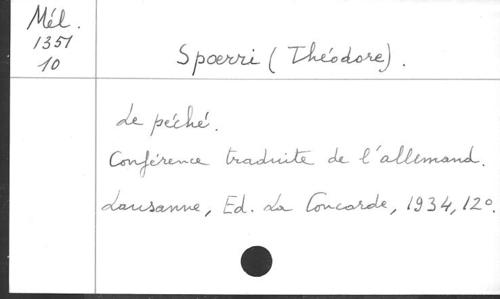 Mél.
1351
10
Spœrri (Théodore).
Le péché.
Conférence traduite de l'allemand.
Lausanne, Ed. La Concorde, 1934, 12°.